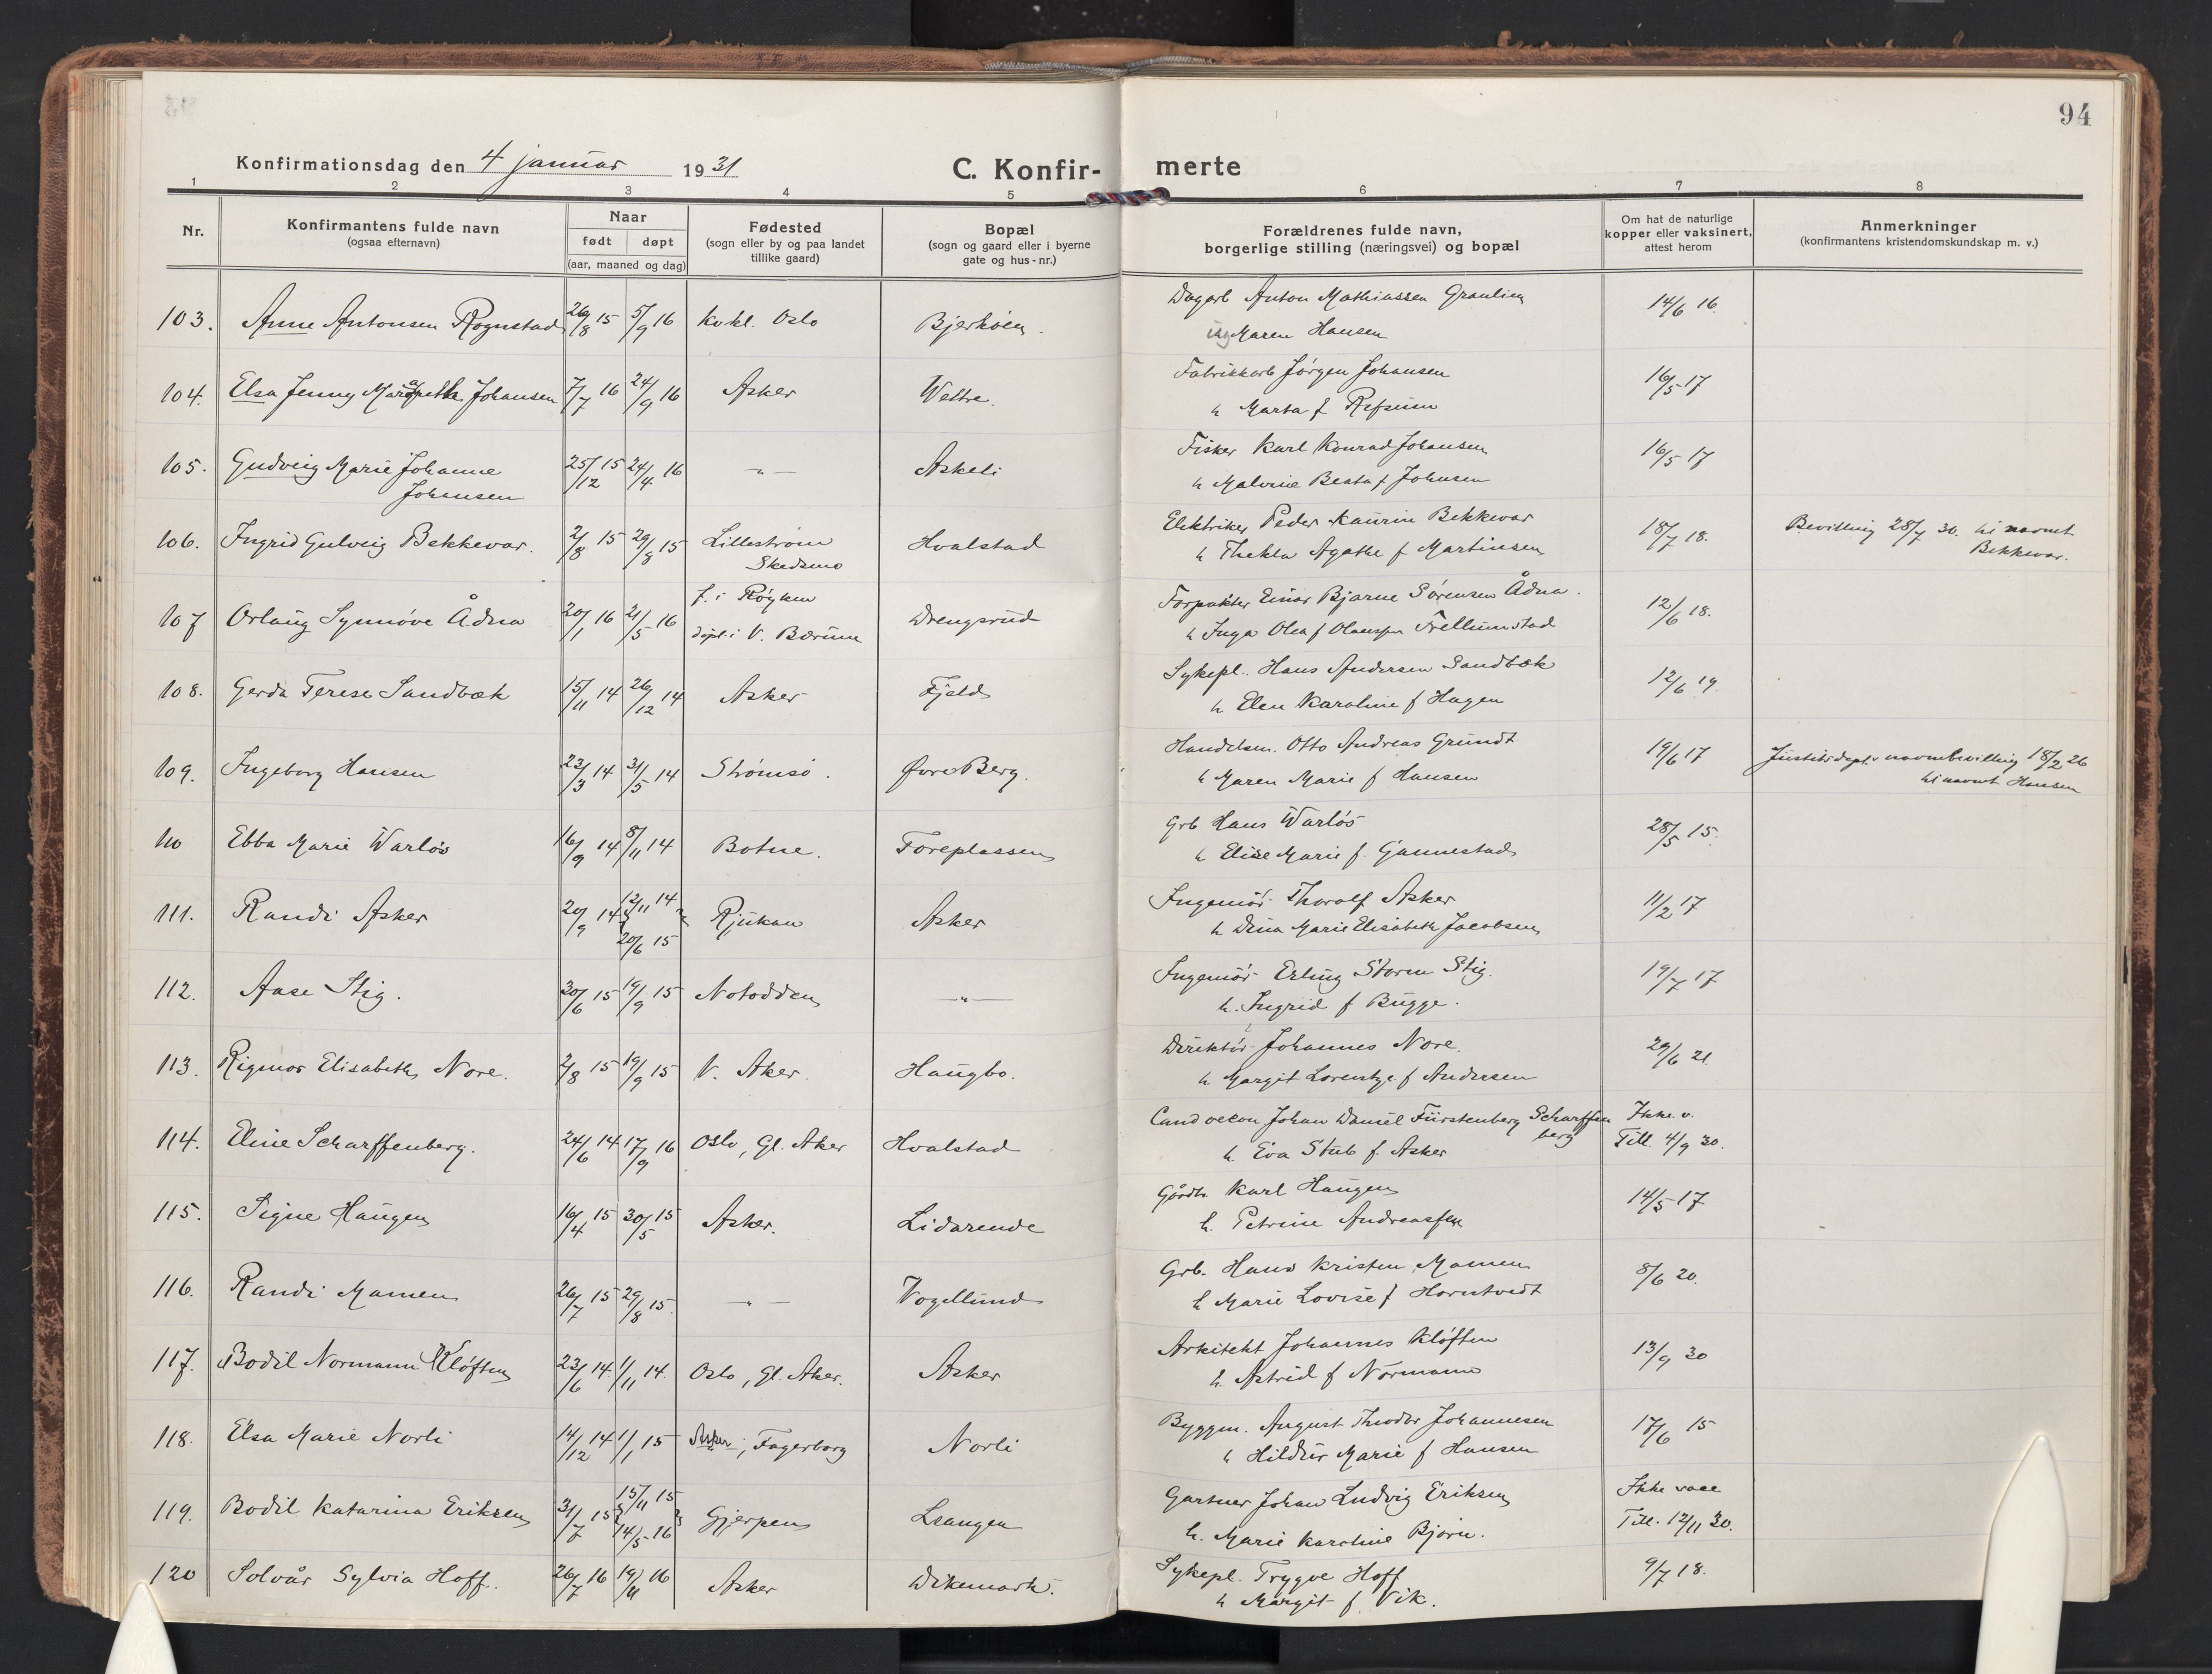 94
Konfirmationsdag den 4 januar 1931
C. Konfir- merte
1 2 3 4 5 6 7 8
Nr.
Konfirmantens fulde navn
(ogsaa efternavn)
Naar
født døpt
(aar, maaned og dag)
Fødested
(sogn eller by og paa landet
tillike gaard)
Bopæl
(sogn og gaard eller i byerne
gate og hus-nr.)
Forældrenes fulde navn,
borgerlige stilling (næringsvei) og bopæl
Om hat de naturlige
kopper eller vaksinert,
attest herom
Anmerkninger
(konfirmantens kristendomskundskap m. v.)
103. Anne Antonsen Rognstad 26/8 15 5/9 16 Kvkl. Oslo Bjerkåen. Dagarb Anton Mathiassen Graulien 14/6 16.
ug Maren Hansen
104. Elsa Jenny Margrethe Johansen 7/7 16 24/9 16 Asker Wettre. Fabrikkarb Jørgen Johansen 16/5 17
h Marta f Refsum
105. Gudveig Marie Johanne 25/12 15 24/4 16 -"- Askeli Fisker Karl Konrad Johansen 16/5 17
Johansen h Malvine Besta f Johnsen
106. Ingrid Gulveig Bekkevar. 2/8 15 29/8 15 Lillestrøm Hvalstad Elektriker Peder Kaurin Bekkevar 18/7 18. Bevilling 28/7 30. til navnet
Skedsmo h Thekla Agathe f Martinsen Bekkevar.
107 Orlaug Synnøve Ådna 20/1 16 21/5 16 f. i Røyken Drengsrud Forpakter Einar Bjarne Sørensen Ådna. 12/6 18.
døpt i V. Bærum h Inga Olea f Olaussen Frellumstad
108. Gerda Terese Sandbæk 15/11 14 26/12 14 Asker Fjeld Sykepl. Hans Andersen Sandbæk 12/6 19.
h Elen Karoline f Hagen
109. Ingeborg Hansen 23/3 14 31/5 14 Strømsø. Øvre Berg. Handelsm. Otto Andreas Grundt 19/6 17 Justitsdept.s navnebevilling 18/2 26
h Maren Marie f Hansen til navnet Hansen
110 Ebba Marie Warløs 16/9 14 8/11 14 Botne. Foreplassen Grb Hans Warløs 28/5 15.
h Elise Marie f. Gannestad
111. Randi Asker 20/9 14 12/11 14 Rjukan Asker Ingeniør Thoralf Asker 11/2 17
20/6 15 h Dina Marie Elisabeth Jacobsen
112. Aase Stig. 30/6 15 19/9 15 Notodden -"- Ingeniør Erling Storm Stig. 19/7 17
h. Ingrid f Bugge.
113. Rigmor Elisabeth Nore. 2/8 15 19/9 15 V. Aker. Haugbo. Direktør Johannes Nore. 29/6 21.
h Margit Lorentze f Andersen
114. Eline Scharffenberg. 24/6 14 17/9 16 Oslo, Gl. Aker Hvalstad Cand oecon Johan Daniel Fürstenberg Scharffen Ikke v.
berg Till. 4/9 30.
h. Eva Stub f. Asker
115. Signe Haugen 16/4 15 30/5 15 Asker. Lidarende Gårdbr. Karl Haugen 14/5 17
h. Petrine Andreassen
116. Randi Mamen 26/7 15 29/8 15. -"- Vogellund Grb. Hans Kristen Mamen 8/6 20.
h Marie Lovise f Horntvedt
117. Bodil Normann Kløften 23/6 14 1/11 14. Oslo, Gl. Aker. Asker Arkitekt Johannes Kløften 13/9 30
h. Astrid f Normann
118. Elsa Marie Norli 14/12 14 1/1 15 Asker, Fagerborg Norli Byggm. August Theodor Johannesen 17/6 15
h Hildur Marie f Hansen
119. Bodil Katarina Eriksen 31/7 15 15/11 15 Gjerpen Leangen Gartner Johan Ludvig Eriksen Ikke vacc
14/5 16 h. Marie Karoline Bjørn. Till. 12/11 30.
120 Solvår Sylvia Hoff. 26/7 16 19/11 16 Asker Dikemark. Sykepl. Trygve Hoff 9/7 18.
h Margit f. Vik.